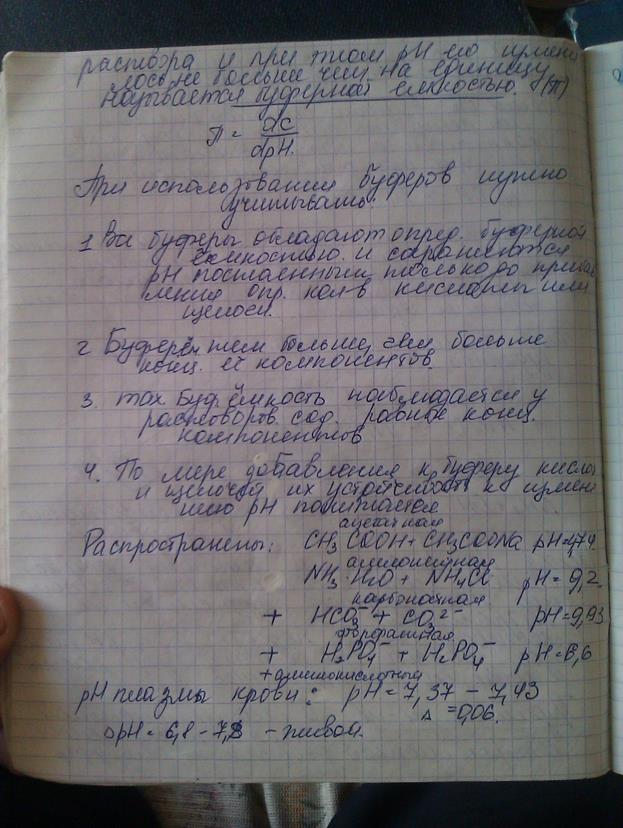 раствора и при этом pH его измени
лось не больше чем на единицу
называется буферной ёмкостью. (π)
π = dc
dpH.
При использовании буферов нужно
учитывать:
1 Все буферы обладают опред. буферной
ёмкостью и сохраняются
pH постоянным только до прибав
ления опр. кол-в кислоты или
щелочи.
2 Буфер ём тем больше, чем больше
конц. её компонентов.
3. max буф ёмкость наблюдается у
растворов сод. равные конц.
компонентов
4. По мере добавления к буферу кислот
и щелочей их устойчивость к измене
нию pH понижается
ацетатная
Распространены: CH3COOH + CH3COONa pH=4,74.
аммонийная
NH3·H2O + NH4Cl pH=9,2.
карбонатная
+ HCO3⁻ + CO3²⁻ pH=9,93
фосфатная
+ H2PO4⁻ + H2PO4⁻ pH=6,6
+ аминокислотный
pH плазмы крови: pH = 7,37 – 7,43
Δ =0,06.
ΔpH = 6,8 – 7,8 – живой.